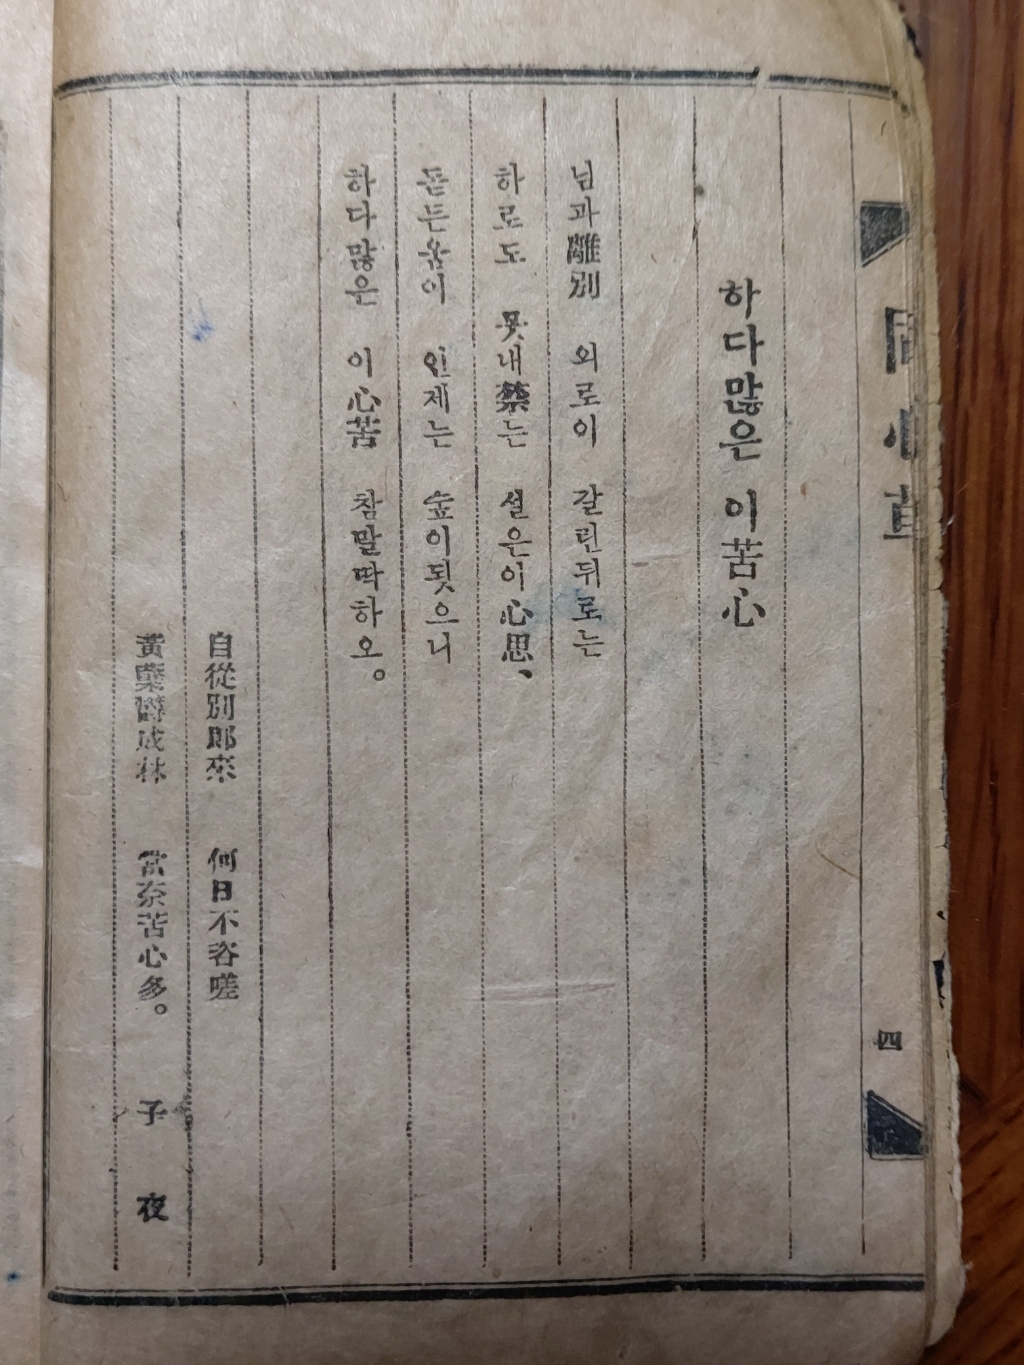 하다많은 이苦心
님과離別 외로이 갈린뒤로는
하로도 못내禁는 설은이心思、
돋든움이 인제는 숲이됫으니
하다많은 이心苦 참말딱하오。
自從別郎來 何日不咨嗟
黃蘗鬱成林 當奈苦心多。 子夜
四